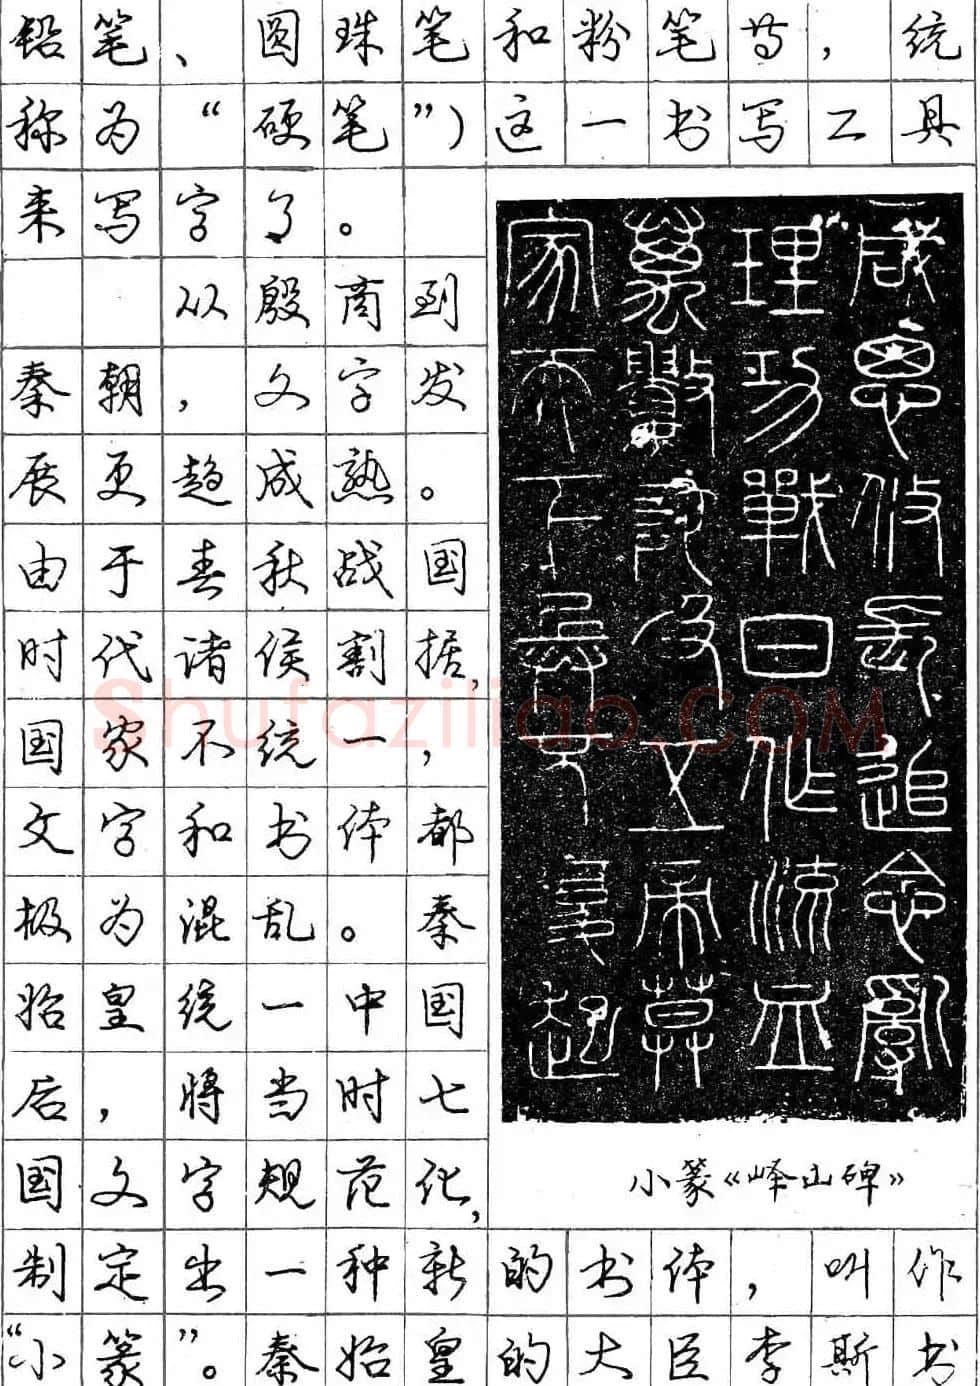 铅笔、圆珠笔和粉笔等，统
称为“硬笔”）这一书写工具
来写字了。
从殷商到
秦朝，文字发
展更趋成熟。
由于春秋战国
时代诸侯割据，
国家不统一，
文字和书体都
极为混乱。秦
始皇统一中国
后，将当时七
国文字规范化，
制定出一种新的书体，叫作
“小篆”。秦始皇的大臣李斯书
咸思攸長追念亂
理功戰日作流血
萬數陀及五帝莫
家天下兵不復起
小篆《峄山碑》
Shufaziliao.COM